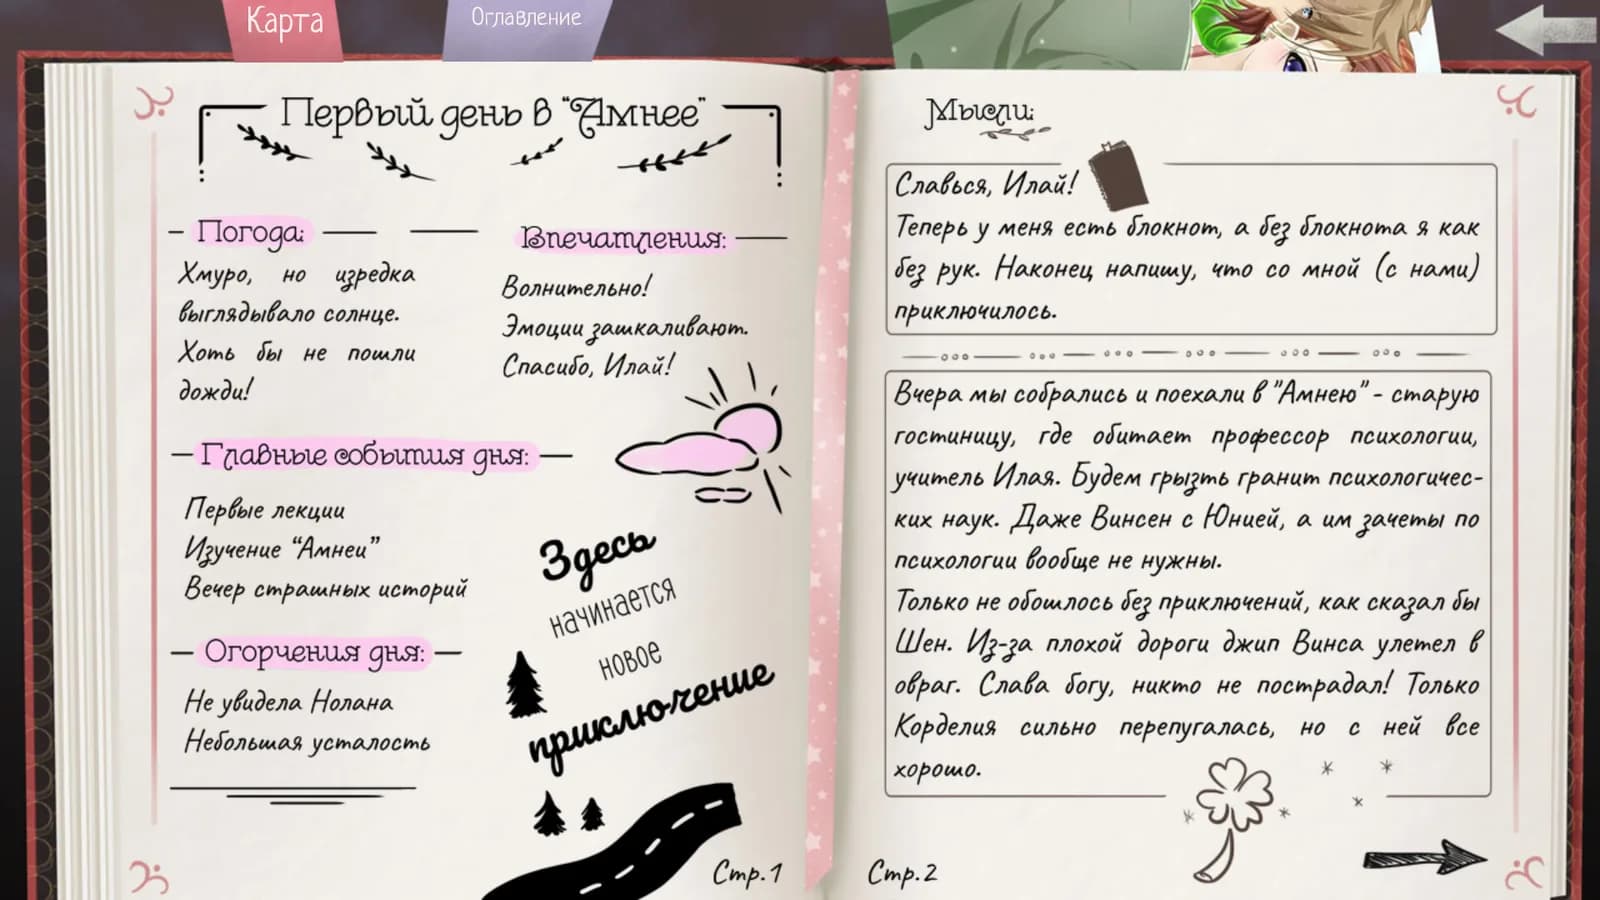 Карта
Оглавление
Первый день в “Амнее”
Погода:
Хмуро, но изредка
выглядывало солнце.
Хоть бы не пошли
дожди!
Впечатления:
Волнительно!
Эмоции зашкаливают.
Спасибо, Илай!
Главные события дня:
Первые лекции
Изучение “Амнеи”
Вечер страшных историй
Огорчения дня:
Не увидела Нолана
Небольшая усталость
Здесь
начинается
новое
приключение
Стр.1
Мысли:
Славься, Илай!
Теперь у меня есть блокнот, а без блокнота я как
без рук. Наконец напишу, что со мной (с нами)
приключилось.
Вчера мы собрались и поехали в "Амнею" - старую
гостиницу, где обитает профессор психологии,
учитель Илая. Будем грызть гранит психологичес-
ких наук. Даже Винсен с Юнией, а им зачеты по
психологии вообще не нужны.
Только не обошлось без приключений, как сказал бы
Шен. Из-за плохой дороги джип Винса улетел в
овраг. Слава богу, никто не пострадал! Только
Корделия сильно перепугалась, но с ней все
хорошо.
Стр.2